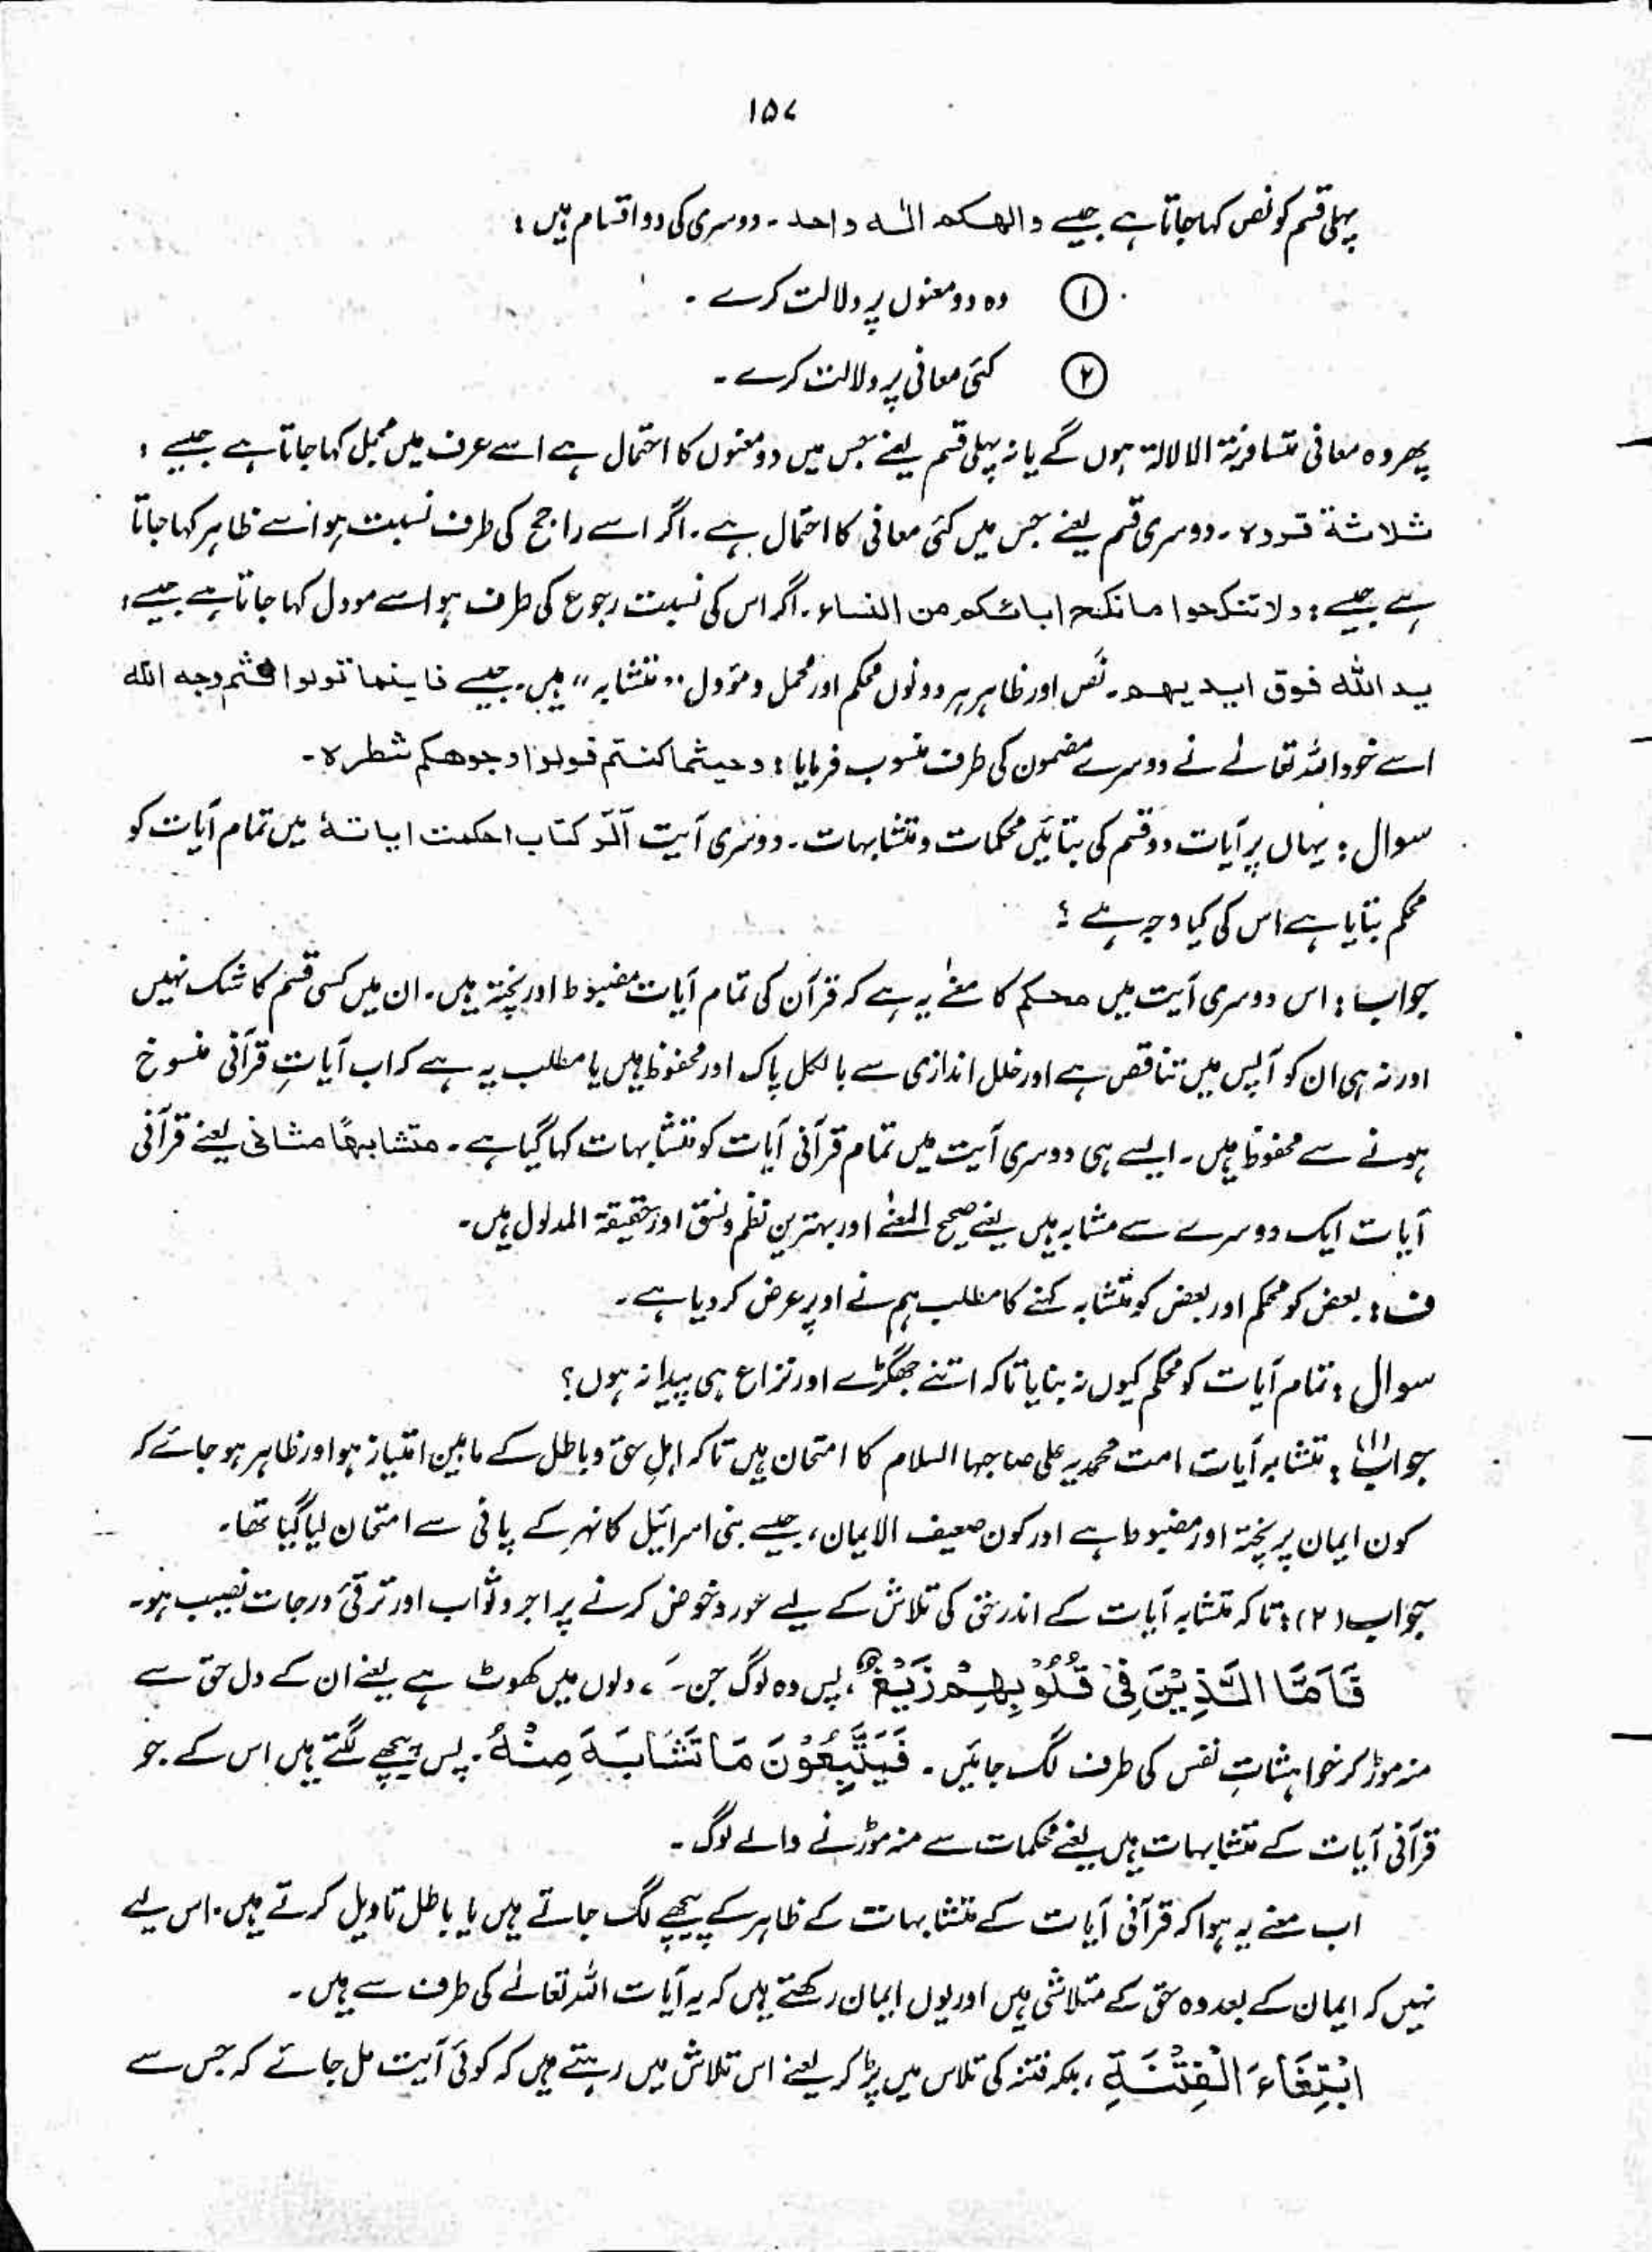 ۱۵۷
پہلی قسم کو نص کہا جاتا ہے جیسے والھکم الٰہ واحد۔ دوسری کی دو اقسام ہیں :
① وہ دو معنوں پر دلالت کرے ۔
② کئی معانی پر دلالت کرے ۔
پھر وہ معانی متساویۃ الدلالۃ ہوں گے یا نہ پہلی قسم یعنے جس میں دو معنوں کا احتمال ہے اسے عرف میں مجمل کہا جاتا ہے جیسے :
ثلاثۃ قروء ۔ دوسری قسم یعنے جس میں کئی معانی کا احتمال ہے ۔ اگر اسے راجح کی طرف نسبت ہو اسے ظاہر کہا جاتا
ہے جیسے : ولا تنکحوا ما نکح ابائکم من النساء ۔ اگر اس کی نسبت رجوع کی طرف ہو اسے مودل کہا جاتا ہے جیسے :
ید اللہ فوق ایدیھم ۔ نص اور ظاہر ہر دونوں محکم اور مجمل و مؤول " متشابہ " ہیں ۔ جیسے فاینما تولوا فثم وجہ اللہ
اسے خود اللہ تعالےٰ نے دوسرے مضمون کی طرف منسوب فرمایا : وحیثما کنتم فولوا وجوھکم شطرہ ۔
سوال : یہاں پر آیات دو قسم کی بتائیں محکمات و متشابہات ۔ دوسری آیت الٓر کتاب احکمت ایاتہٗ میں تمام آیات کو
محکم بتایا ہے اس کی کیا وجہ ہے ؟
جواب : اس دوسری آیت میں محکم کا معنےٰ یہ ہے کہ قرآن کی تمام آیات مضبوط اور پختہ ہیں ۔ ان میں کسی قسم کا شک نہیں
اور نہ ہی ان کو آپس میں تناقص ہے اور خلل اندازی سے بالکل پاک اور محفوظ ہیں یا مطلب یہ ہے کہ اب آیاتِ قرآنی منسوخ
ہونے سے محفوظ ہیں ۔ ایسے ہی دوسری آیت میں تمام قرآنی آیات کو متشابہات کہا گیا ہے ۔ متشابھًا مثانی یعنے قرآنی
آیات ایک دوسرے سے مشابہ ہیں یعنے صحیح المعنےٰ اور بہترین نظم و نسق اور حقیقۃ المدلول ہیں ۔
ف : بعض کو محکم اور بعض کو متشابہ کہنے کا مطلب ہم نے اوپر عرض کر دیا ہے ۔
سوال : تمام آیات کو محکم کیوں نہ بنایا تاکہ اتنے جھگڑے اور نزاع ہی پیدا نہ ہوں ؟
جواب (۱) : متشابہ آیات امت محمدیہ علی صاحبہا السلام کا امتحان ہیں تاکہ اہلِ حق و باطل کے مابین امتیاز ہو اور ظاہر ہو جائے کہ
کون ایمان پر پختہ اور مضبوط ہے اور کون ضعیف الایمان ، جیسے بنی اسرائیل کا نہر کے پانی سے امتحان لیا گیا تھا ۔
جواب (۲) : تاکہ متشابہ آیات کے اندر حق کی تلاش کے لیے غور و خوض کرنے پر اجر و ثواب اور ترقیٔ درجات نصیب ہو ۔
فَاَمَّا الَّذِیْنَ فِیْ قُلُوْبِھِمْ زَیْغٌ ، پس وہ لوگ جن کے دلوں میں کھوٹ ہے یعنے ان کے دل حق سے
منہ موڑ کر خواہشاتِ نفس کی طرف لگ جائیں ۔ فَیَتَّبِعُوْنَ مَا تَشَابَہَ مِنْہُ . پس پیچھے لگتے ہیں اس کے جو
قرآنی آیات کے متشابہات ہیں یعنے محکمات سے منہ موڑنے والے لوگ ۔
اب معنے یہ ہوا کہ قرآنی آیات کے متشابہات کے ظاہر کے پیچھے لگ جاتے ہیں یا باطل تاویل کرتے ہیں ۔ اس لیے
نہیں کہ ایمان کے بعد وہ حق کے متلاشی ہیں اور یوں ایمان رکھتے ہیں کہ یہ آیات اللہ تعالےٰ کی طرف سے ہیں ۔
ابْتِغَاءَ الْفِتْنَۃِ ، بلکہ فتنہ کی تلاس میں پڑ کر یعنے اس تلاش میں رہتے ہیں کہ کوئی آیت مل جائے کہ جس سے